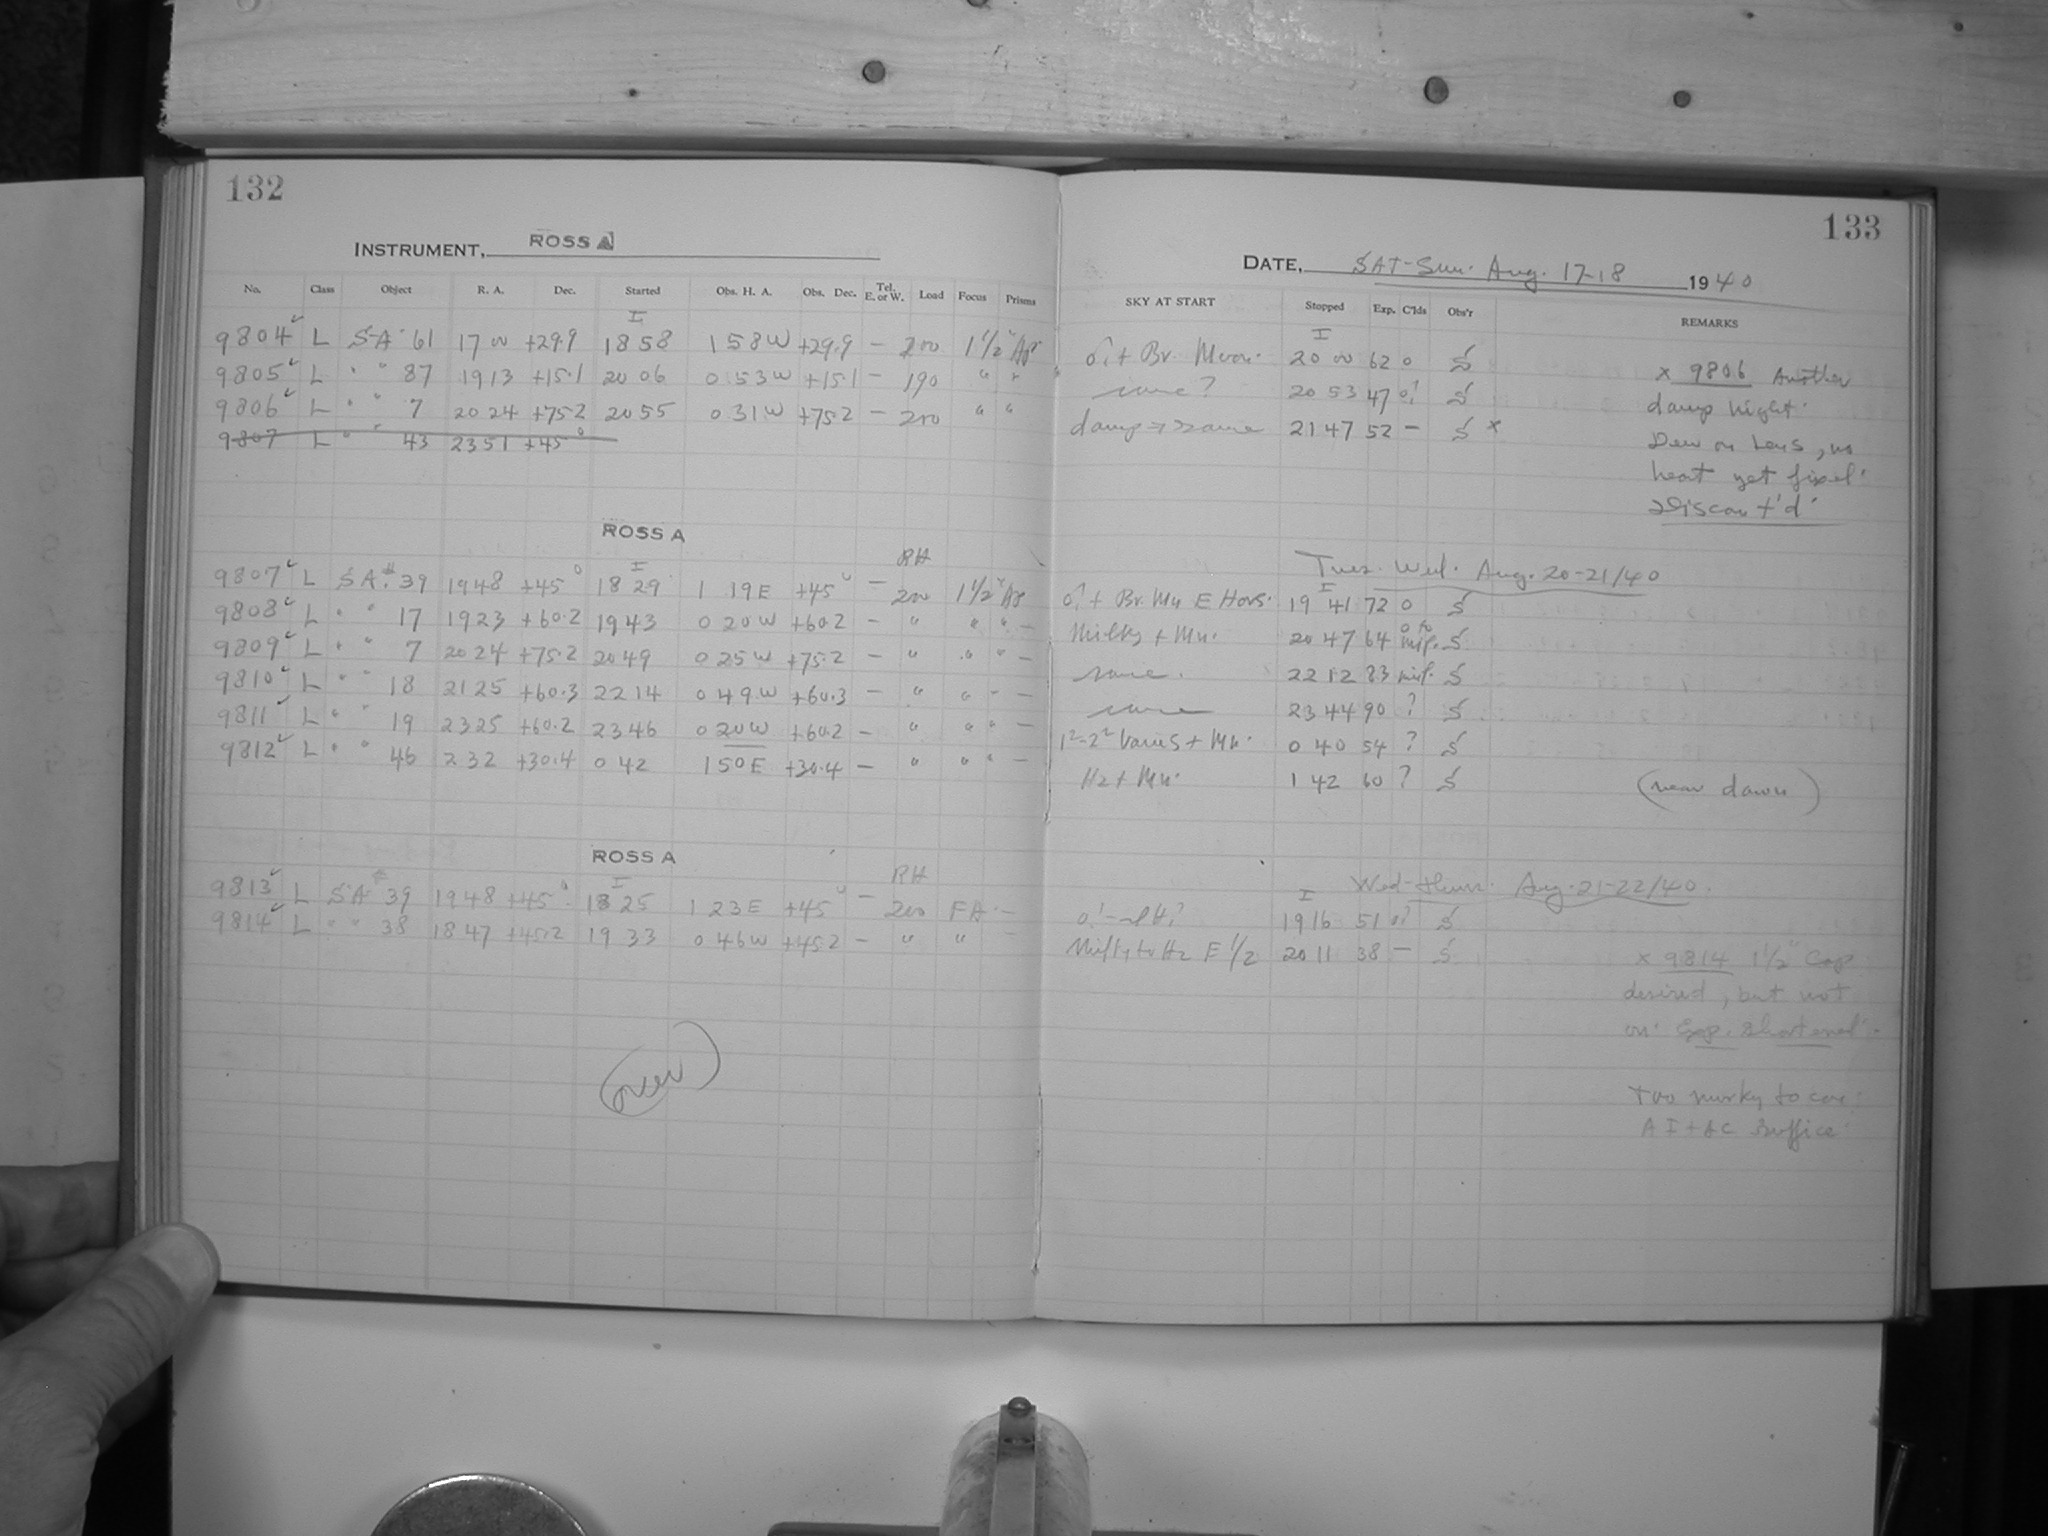 132
INSTRUMENT, ROSS A
No. Class Object R. A. Dec. Started Obs. H. A. Obs. Dec. Tel. E. or W. Load Focus Prisms
I
9804 ✓ L SA 61 17 00 +29.9 18 58 1 58 W +29.9 – 200 1 1/2" Ap
9805 ✓ L " " 87 19 13 +15.1 20 06 0 53 W +15.1 – 190 " "
9806 ✓ L " " 7 20 24 +75.2 20 55 0 31 W +75.2 – 200 " "
9807 L " " 43 23 51 +45°
ROSS A
RH
I
9807 ✓ L SA# 39 19 48 +45° 18 29 1 19 E +45° – 200 1 1/2" Ap
9808 ✓ L " " 17 19 23 +60.2 19 43 0 20 W +60.2 – " " " –
9809 ✓ L " " 7 20 24 +75.2 20 49 0 25 W +75.2 – " " " –
9810 ✓ L " " 18 21 25 +60.3 22 14 0 49 W +60.3 – " " " –
9811 ✓ L " " 19 23 25 +60.2 23 46 0 20 W +60.2 – " " " –
9812 ✓ L " " 46 2 32 +30.4 0 42 1 50 E +30.4 – " " " –
ROSS A
RH
I
9813 ✓ L SA# 39 19 48 +45° 18 25 1 23 E +45° – 200 FA –
9814 ✓ L " " 38 18 47 +45.2 19 33 0 46 W +45.2 – " " –
(over)
133
DATE, SAT-Sun. Aug. 17-18 1940
SKY AT START Stopped Exp. C'lds Obs'r REMARKS
I
+ Br. Moon. 20 00 62 0 S
same? 20 53 47 0? S
damp → same 21 47 52 – S x
x 9806 Another
damp night.
Dew on Lens, no
heat yet fixed.
Discont'd.
Tues. Wed. Aug. 20-21/40
I
+ Br. Mn E Hors. 19 41 72 0 S
Milky + Mn. 20 47 64 0 to S
same. 22 12 83 S
same 23 44 90 ? S
1²-2² Varies + Mn. 0 40 54 ? S
Hz + Mn. 1 42 60 ? S (near dawn)
Wed-Thurs. Aug. 21-22/40.
I
19 16 51 0? S
to Hz E 1/2 20 11 38 – S
x 9814 1 1/2" Cap
desired, but not
on. Exp. Shortened.
Too murky to
AI + AC Suffice